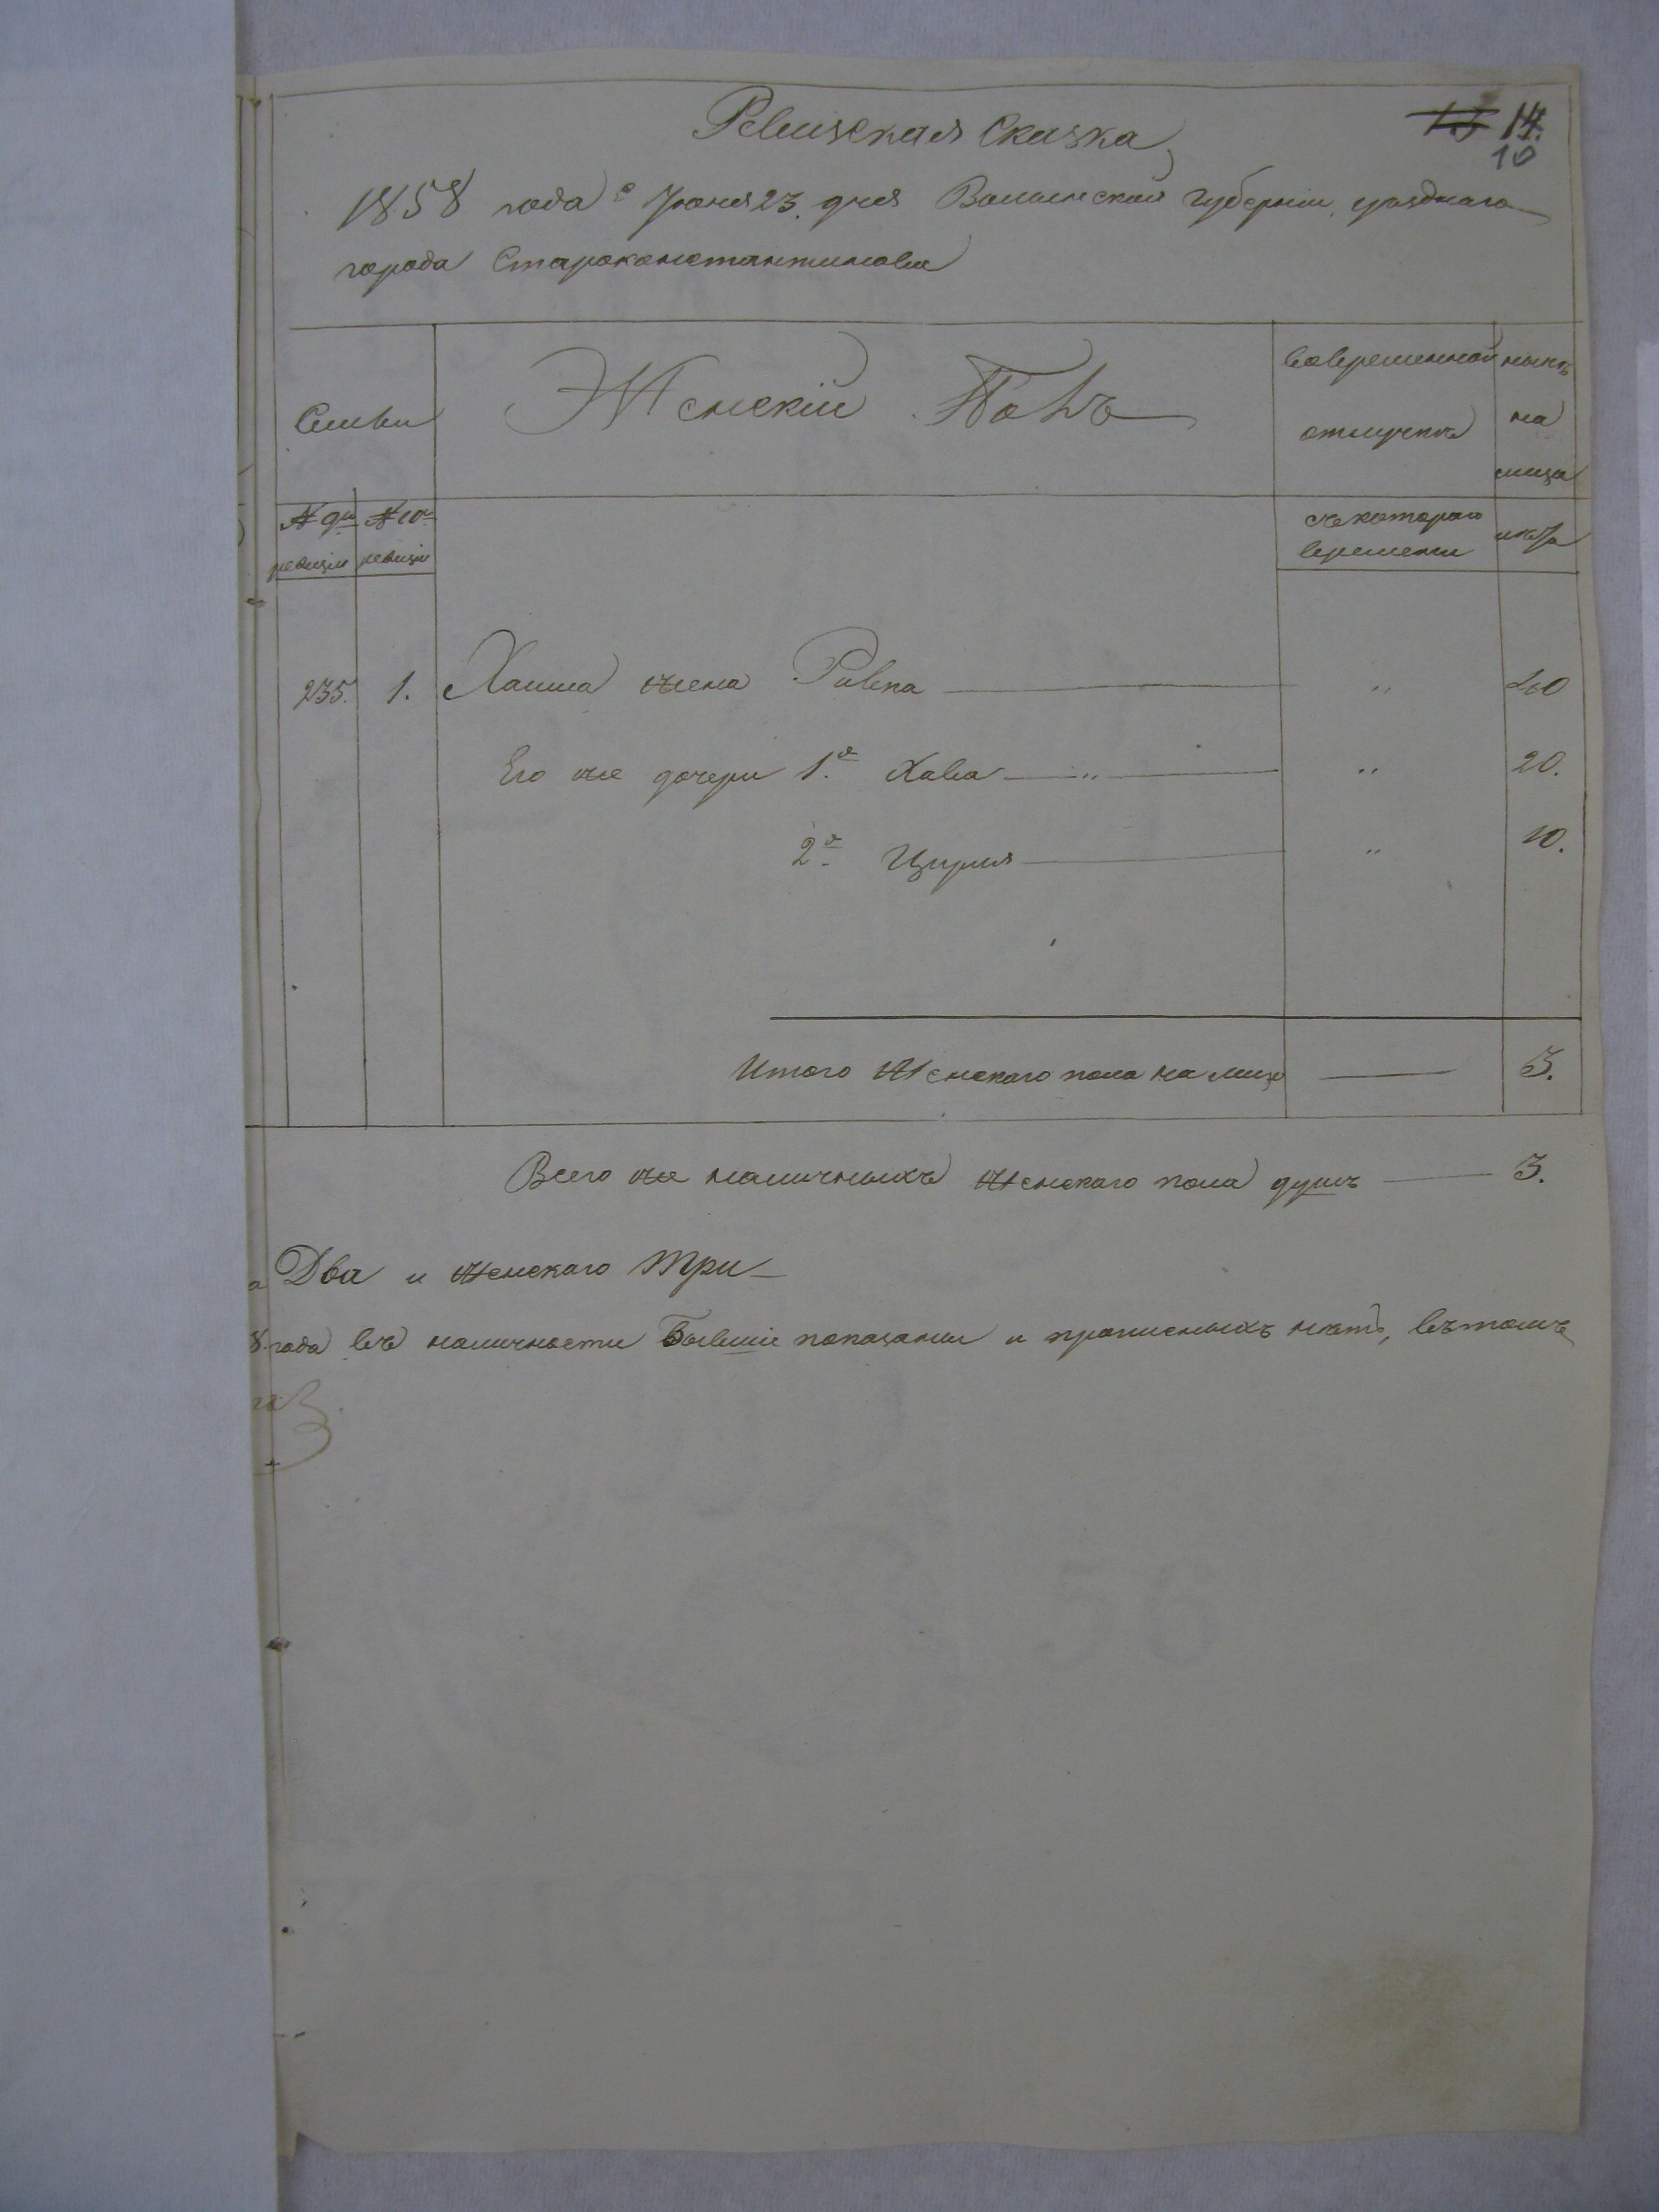 Ревизская Сказка
13 14.
10
1858 года Июня 23. дня Волынской Губерніи, уѣзднаго
города Староконстантинова
Семьи
Женскій Полъ
Во временной отлучкѣ
нынѣ на лицо
№ 9й ревизіи
№ 10й ревизіи
съ котораго времени
лѣта
235. 1. Хаима жена Ривка " 40
Его же дочери 1я Хава " " 20.
2я Цирля " 10.
Итого Женскаго пола на лицо 3.
Всего же наличныхъ Женскаго пола душъ 3.
а Два и женскаго три
8 года въ наличности бывшіе показаны и прописныхъ нѣтъ, въ томъ